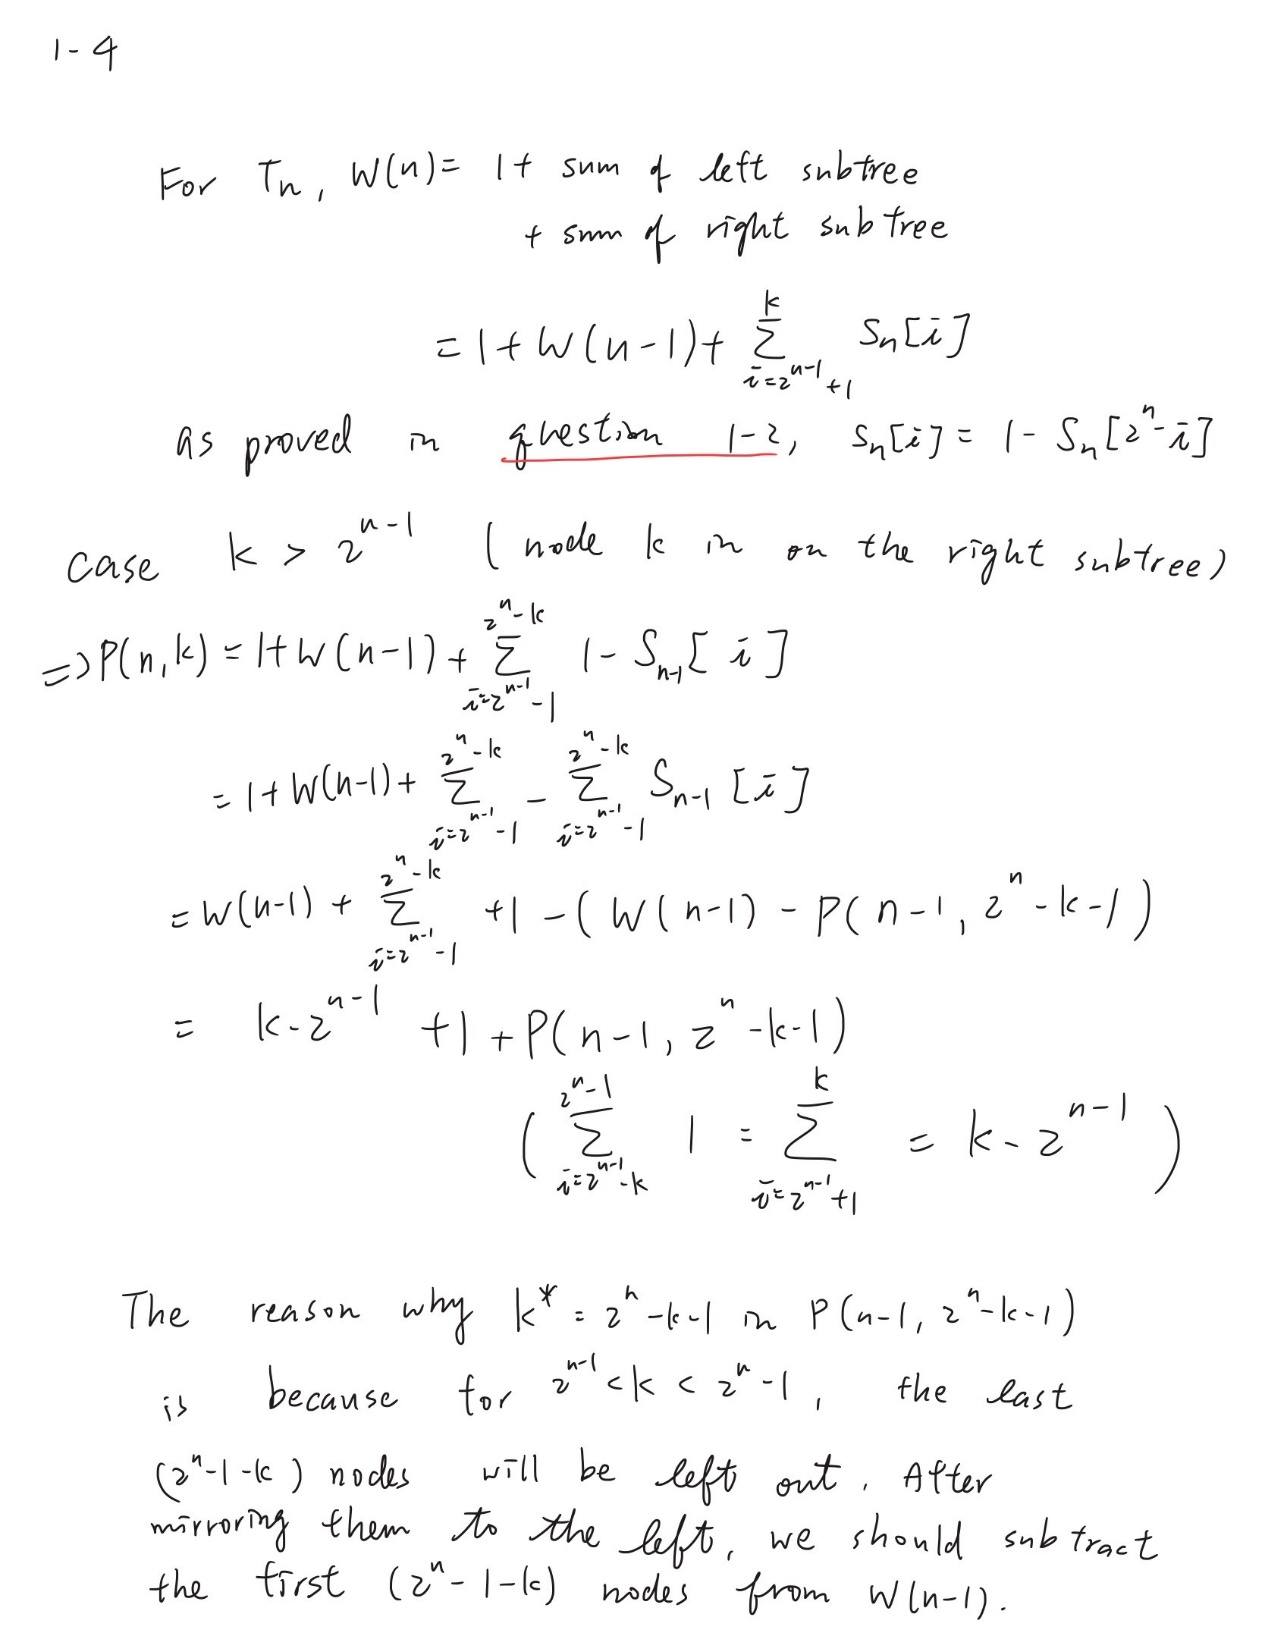 1-4
For Tn, W(n)= 1+ sum of left subtree
+ sum of right subtree
= 1+W(n-1)+ \sum_{i=2^{n-1}+1}^{k} Sn[i]
as proved in question 1-2, Sn[i] = 1- Sn[2^n-i]
case k > 2^{n-1} (node k in on the right subtree)
=> P(n,k) = 1+W(n-1)+ \sum_{i=2^{n-1}-1}^{2^n-k} 1- S_{n-1}[i]
= 1+W(n-1)+ \sum_{i=2^{n-1}-1}^{2^n-k} - \sum_{i=2^{n-1}-1}^{2^n-k} S_{n-1}[i]
= W(n-1) + \sum_{i=2^{n-1}-1}^{2^n-k} +1 -(W(n-1) - P(n-1, 2^n-k-1)
= k-2^{n-1} +1 +P(n-1, 2^n-k-1)
( \sum_{i=2^{n-1}-k}^{2^n-1} 1 = \sum_{i=2^{n-1}+1}^{k} = k-2^{n-1} )
The reason why k* = 2^n-k-1 in P(n-1, 2^n-k-1)
is because for 2^{n-1}<k<2^n-1, the last
(2^n-1-k) nodes will be left out. After
mirroring them to the left, we should subtract
the first (2^n-1-k) nodes from W(n-1).